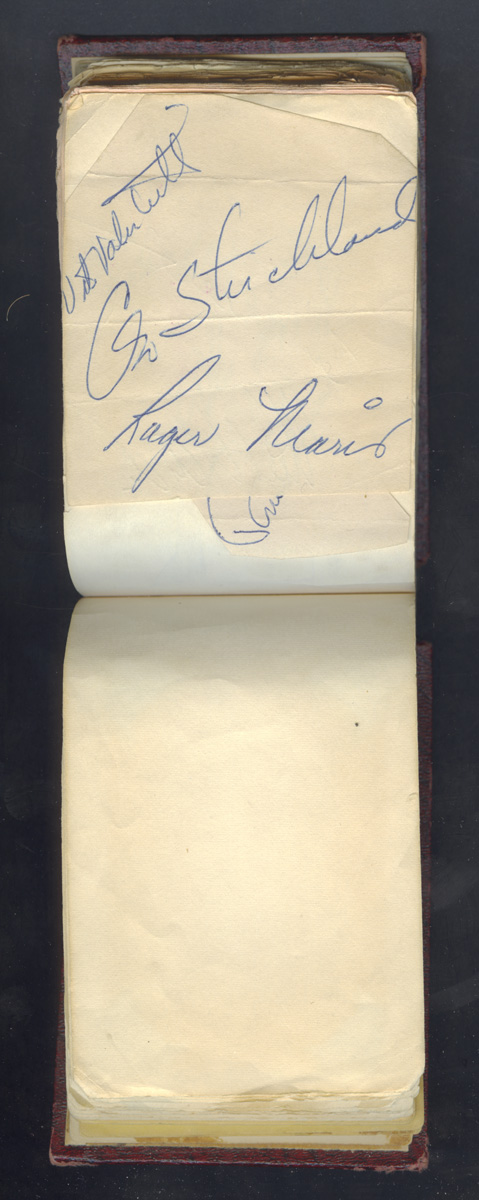 Vito Valentinetti
Geo Strickland
Roger Maris